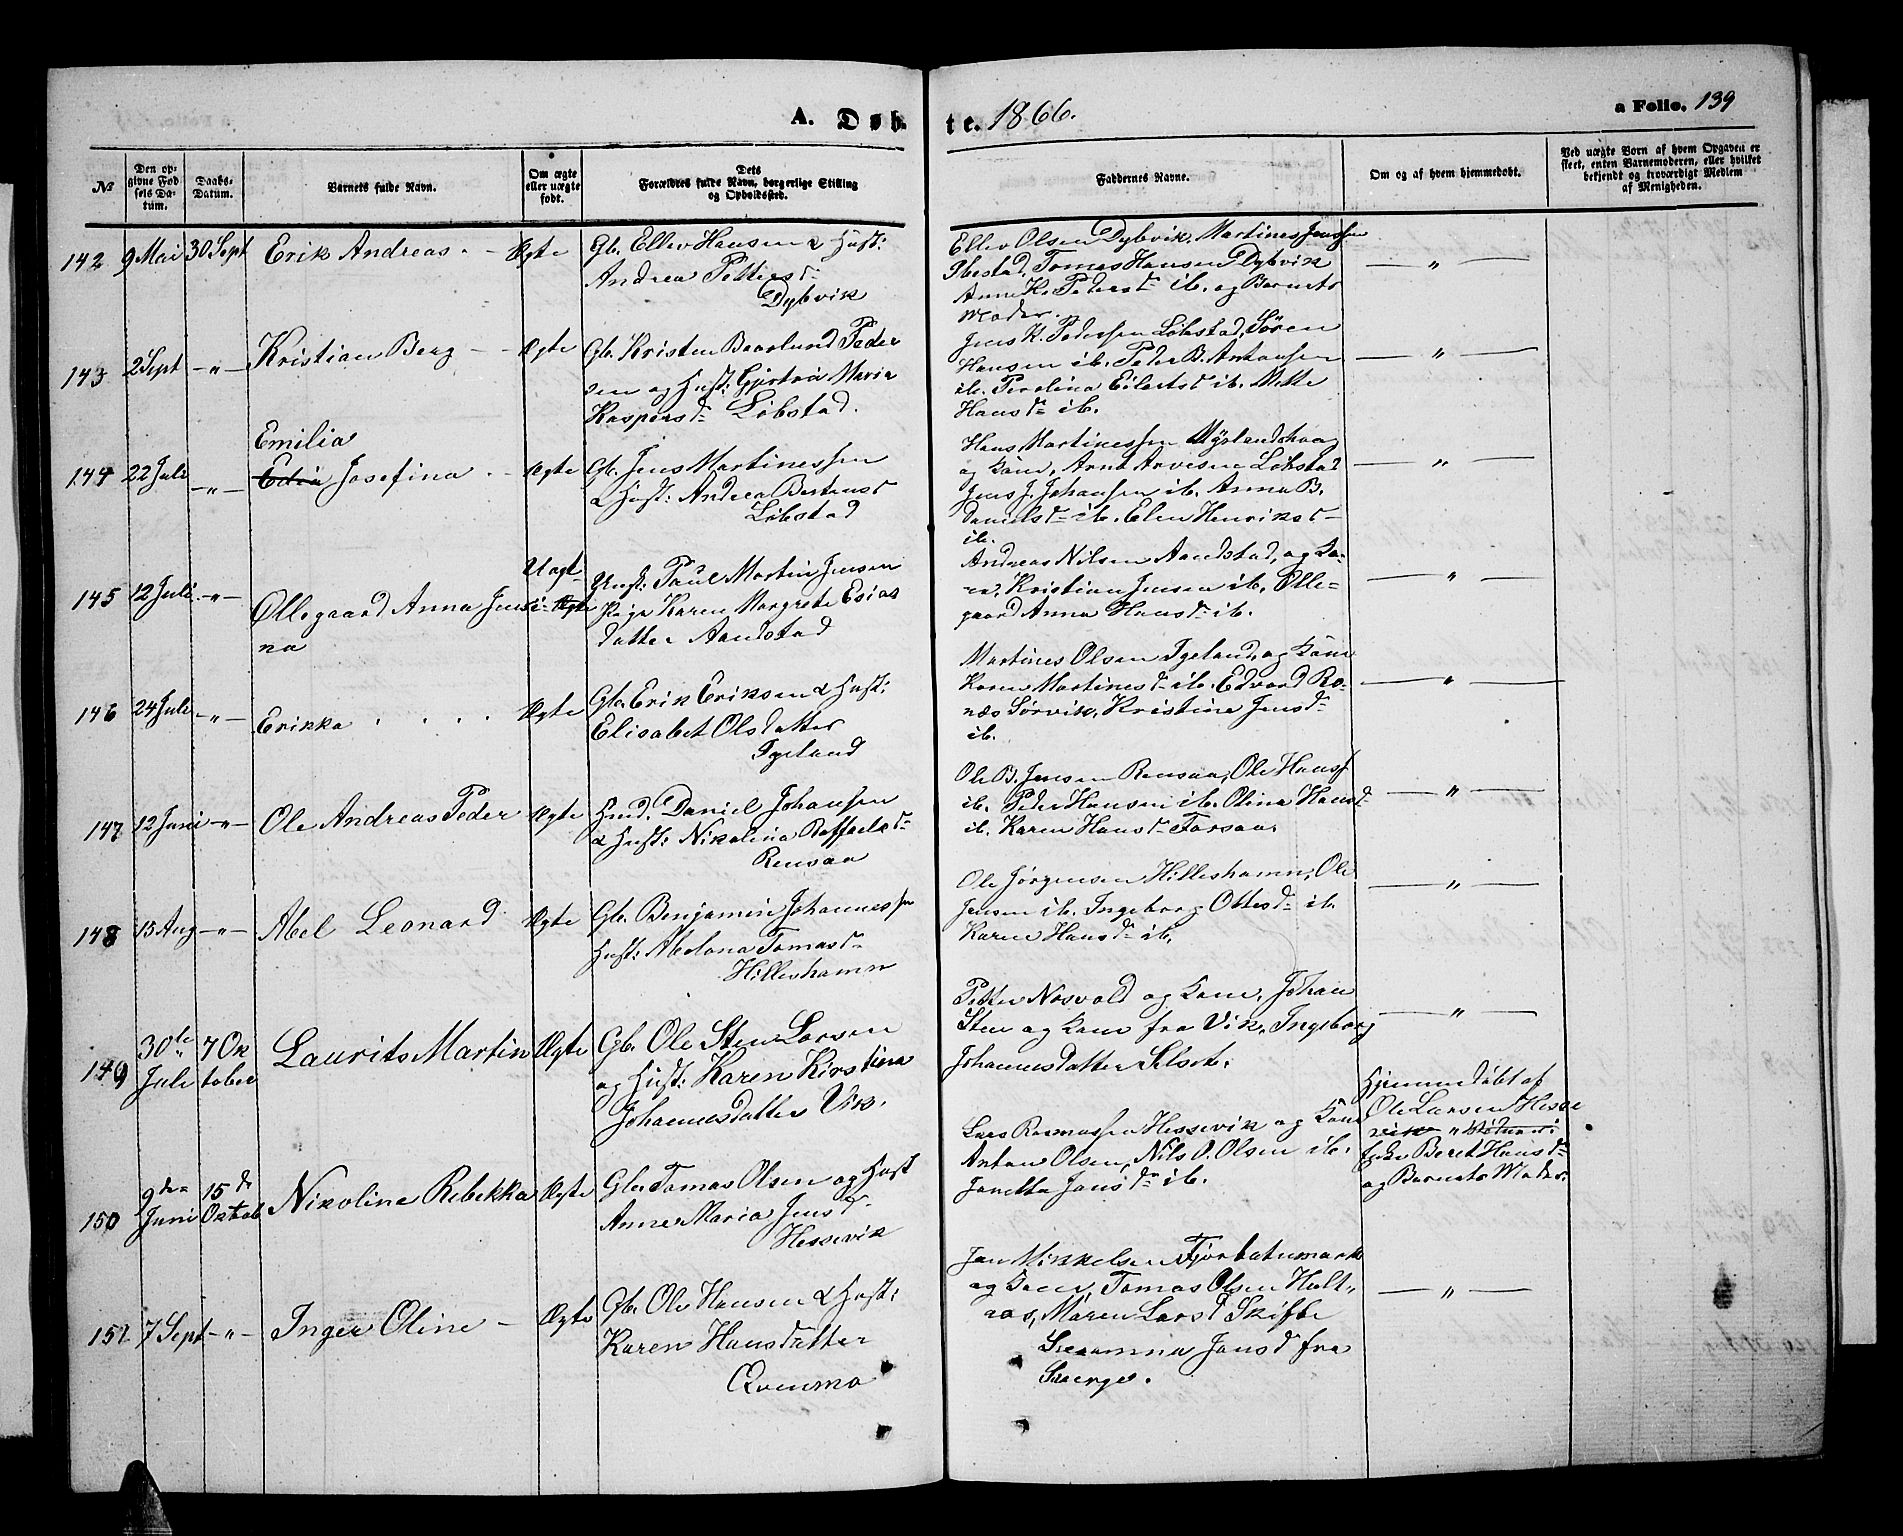 A. Døb-
te. 1866.
a Folio. 139
№
Den op-
givne Fød-
sels Da-
tum.
Daabs-
Datum.
Barnets fulde Navn.
Om ægte
eller uægte
født.
Dets
Forældres fulde Navn, borgerlige Stilling
og Opholdssted.
Faddernes Navne.
Om og af hvem hjemmedøbt.
Ved uægte Børn af hvem Opgaven er
skeet, enten Barnemoderen, eller hvilket
bekjendt og troværdigt Medlem
af Menigheden.
142 9 Mai 30 Sept Erik Andreas Ægte
Gb. Ellev Hansen & Hust:
Andrea Petters dr
Dybvik
Ellev Olsen Dybvik, Martines Jenssen
Ibestad, Tomas Hansen Dybvik
Anne K. Peders dr ib. og Barnets
Moder.
— " —
143 2 Sept — " — Kristian Berg Ægte
Gb. Kristen Baarlund Peder
sen og Hust: Maria
Kaspers dr Löbstad.
Jens K. Pedersen Löbstad, Sören
Hansen ib. Peder B. Antonsen
ib. Perolina Eilerts dr ib. Mette
Hans dr ib.
— " —
144 22 Juli — " — Emilia
Josefina Ægte
Gb. Jens Martinessen
& Hust: Andrea
Löbstad
Hans Martinessen Myrlandshaug
og Kone, Arnt Arnesen Löbstad
Jens J. Johansen ib. Anna B.
Daniels dr ib. Elen Henriks dr
ib.
— " —
145 12 Juli — " — Ollegaard Anna Jensi-
na
Uægte
Ungk: Paul Martin Jensen
Pige Karen Margrete Esias
datter Aandstad
Andreas Nilsen Aandstad, og Ko-
ne, Kristian Jensen ib. Olle-
gaard Anna Hans dr ib.
— " —
146 24 Juli — " — Erikka Ægte
Gb. Erik Eriksen & Hust:
Elisabet Olsdatter
Igeland
Martines Olsen Igeland, og Kone
Karen Martines dr ib. Edvard Ro-
næs Sörvik, Kristine Jens dr
ib.
— " —
147 12 Juni — " — Ole Andreas Peder Ægte
Huusm. Daniel Johansen
& Hust: Nikolina Raffaels dr
Rensaa
Ole B. Jensen Rensaa, Ole Hanss.
ib. Peder Hansen ib. Olina Hans dr
ib. Karen Hans dr Forsaa.
— " —
148 15 Aug — " — Abel Leonard Ægte
Gb. Benjamin Johannessen
Hust: Abelona Tomas dr
Hilleshamn
Ole Jörgensen Hilleshamn, Ole
Jensen ib. Ingeborg Ottes dr ib.
Karen Hans dr ib.
— " —
149 30te
Juli
7 Ok
tober
Laurits Martin Ægte
Gb. Ole Steen Larsen
og Hust: Karen Kirstina
Johannesdatter Vik.
Petter Nosvold og Kone, Johan
Sten og Kone fra Vik, Ingeborg
Johannesdatter Selset.
— " —
150 9de
Juni
15de
Oktob
Nikoline Rebekka Ægte
Gb. Tomas Olsen og Hust
Anne Maria Jens dr
Hessevik
Lars Rasmussen Hessevik og Kone
Anton Olsen, Nils O. Olsen ib.
Janetta Jons dr ib.
Hjemmedöbt af
Ole Larsen Hesse
vik
Enke Beret Hans dr
og Barnets Moder.
151 7 Sept — " — Inger Oline Ægte
Gb. Ole Hansen & Hust:
Karen Hansdatter
Qvenmo
Jon Mikkelsen Fjordbotnmark
og Kone, Tomas Olsen Holt-
aas, Maren Lars dr Skifte
Susanna Jons dr fra
Sverge.
— " —